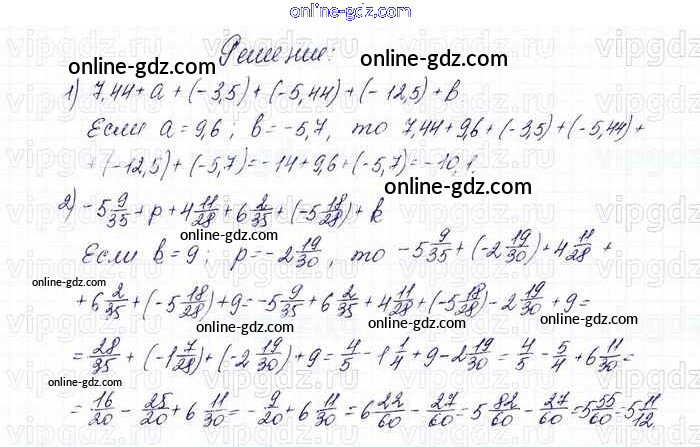 online-gdz.com
Решение:
online-gdz.com online-gdz.com
1) 7,44 + a + (-3,5) + (-5,44) + (-12,5) + b.
Если a = 9,6; b = -5,7, то 7,44 + 9,6 + (-3,5) + (-5,44) +
online-gdz.com
+ (-12,5) + (-5,7) = -14 + 9,6 + (-5,7) = -10,1.
online-gdz.com
2) -5 9/35 + p + 4 11/28 + 6 2/35 + (-5 18/28) + k
online-gdz.com
Если b = 9; p = -2 19/30, то -5 9/35 + (-2 19/30) + 4 11/28 +
online-gdz.com
online-gdz.com
+ 6 2/35 + (-5 18/28) + 9 = -5 9/35 + 6 2/35 + 4 11/28 + (-5 18/28) - 2 19/30 + 9 =
online-gdz.com
= 28/35 + (-1 7/28) + (-2 19/30) + 9 = 4/5 - 1 1/4 + 9 - 2 19/30 = 4/5 - 5/4 + 6 11/30 =
online-gdz.com
online-gdz.com
= 16/20 - 25/20 + 6 11/30 = -9/20 + 6 11/30 = 6 22/60 - 27/60 = 5 82/60 - 27/60 = 5 55/60 = 5 11/12
online-gdz.com
online-gdz.com